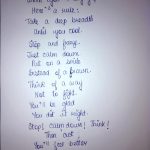 Here's a rule:
Take a deep breath
Until your cool.
Stop and pause.
Just calm down
Put on a smile
Instead of a frown.
Think of a way
Not to fight.
You'll be glad
You did it right.
Stop! calm down! Think!
Then act,
You'll feel better